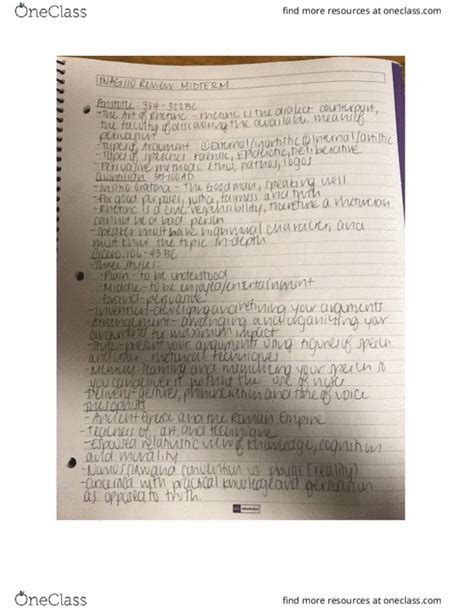 OneClass
find more resources at oneclass.com
INAG110 REVIEW MIDTERM
Aristotle 384-322BC
-The Art of Rhetoric - rhetoric is the dialect counterpart,
the faculty of discovering the available means of
persuasion
-Types of Argument ① external/inartistic ② internal/artistic
-Types of speeches Forensic, Epideictic, Deliberative
-Persuasive methods: Ethos, pathos, logos
Quintilian
- The Good man, speaking well
-For good purposes, justice, fairness and truth
-Rhetoric is a civic responsibility, therefore a rhetorician
cannot be a bad person
-Speaker must have high moral character, and
must know the topic in-depth
Cicero 106-43BC
-Three styles:
-Plain - to be understood
-Middle - to be enjoyed/entertainment
-Grand - persuasive
-Invention - developing and refining your arguments
-Arrangement - arranging and organizing your
arguments for maximum impact
-Style - present your arguments using figures of speech
and other rhetorical techniques
-Memory - learning and memorizing your speech so
you can deliver it without the use of notes
Delivery - gestures, pronunciation and tone of voice
The Sophists
-Ancient Greece and the Roman Empire
-Teachers of art and technique
-Espoused relativistic view of knowledge, cognition
and morality
-Nomos (law and convention vs physis (reality)
-Concerned with practical knowledge and persuasion
as opposed to truth.
OneClass
find more resources at oneclass.com